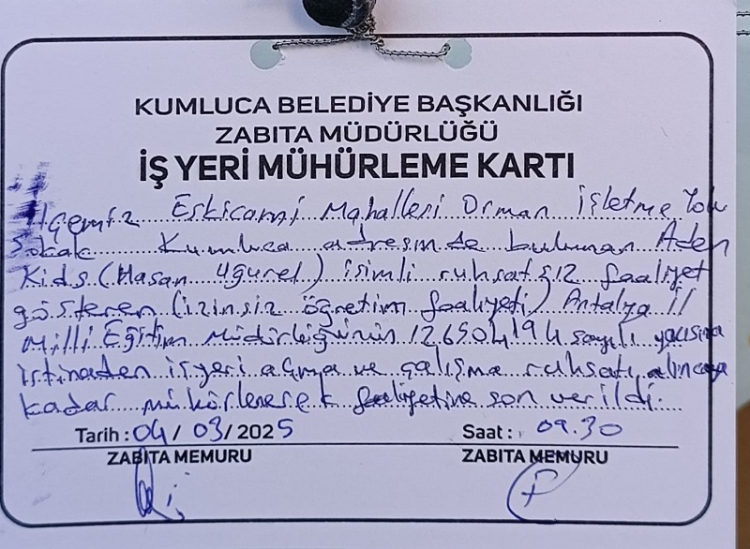 KUMLUCA BELEDİYE BAŞKANLIĞI
ZABITA MÜDÜRLÜĞÜ
İŞ YERİ MÜHÜRLEME KARTI
İlçemiz Eskicami Mahallesi Orman İşletme Yolu
Sokak Kumluca adresinde bulunan Aden
Kids (Hasan Uğurel) isimli ruhsatsız faaliyet
gösteren (izinsiz öğretim faaliyeti) Antalya İl
Milli Eğitim Müdürlüğünün 126504194 sayılı yazısına
istinaden işyeri açma ve çalışma ruhsatı alıncaya
kadar mühürlenerek faaliyetine son verildi.
Tarih : 04 / 03 / 2025 Saat : 09.30
ZABITA MEMURU ZABITA MEMURU